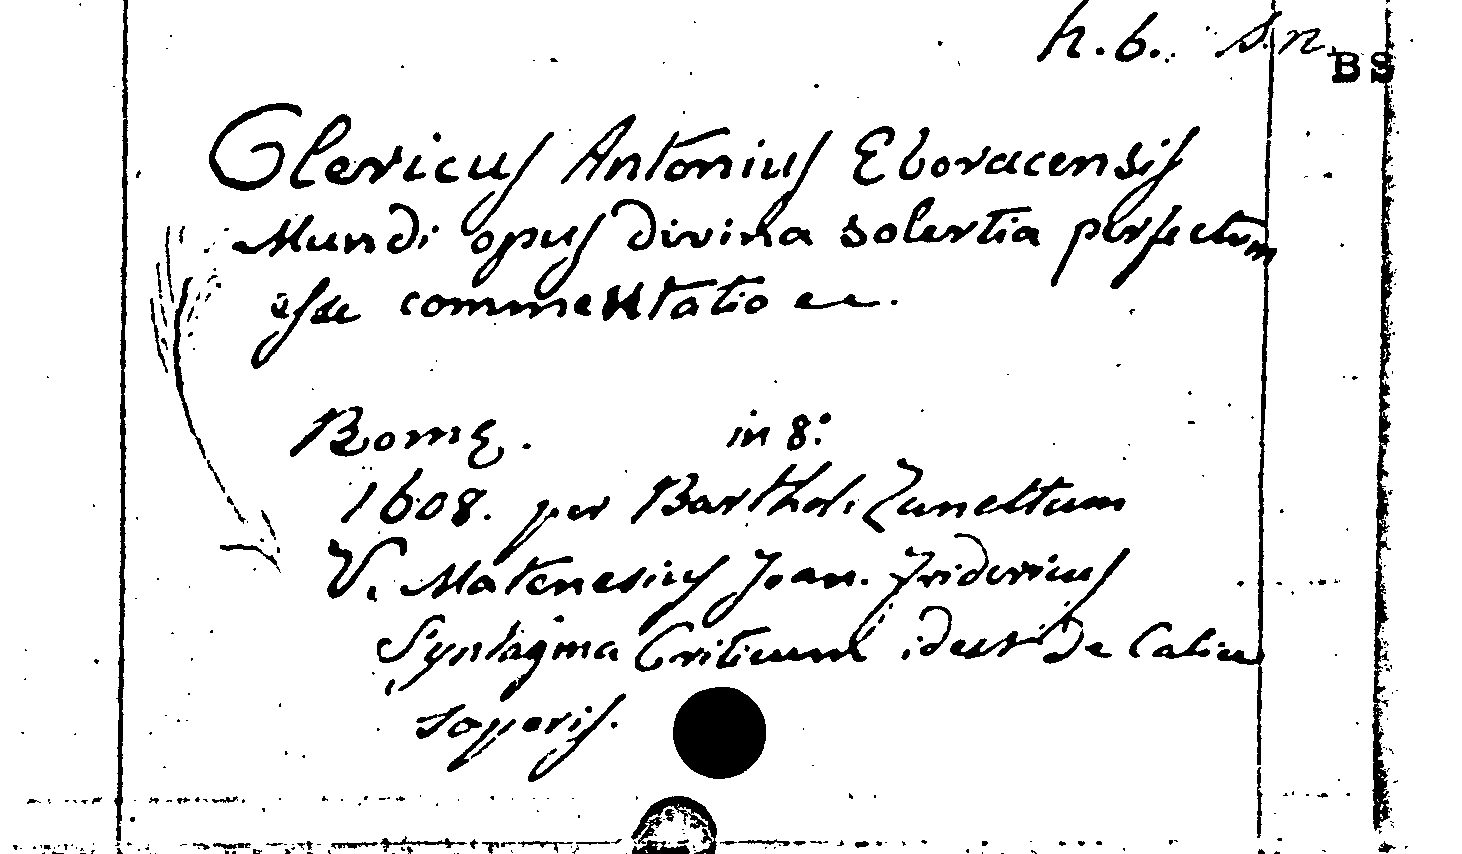 h. 6. s.n.
BS
Clericus Antonius Eboracensis
Mundi opus divina solertia perfectum
esse commentatio ee.
Romę. in 8:
1608. per Barthol. Zanettum
V. Matenesius Joan. Fridericus
Syntagma Criticum idest De Calice
soperis.